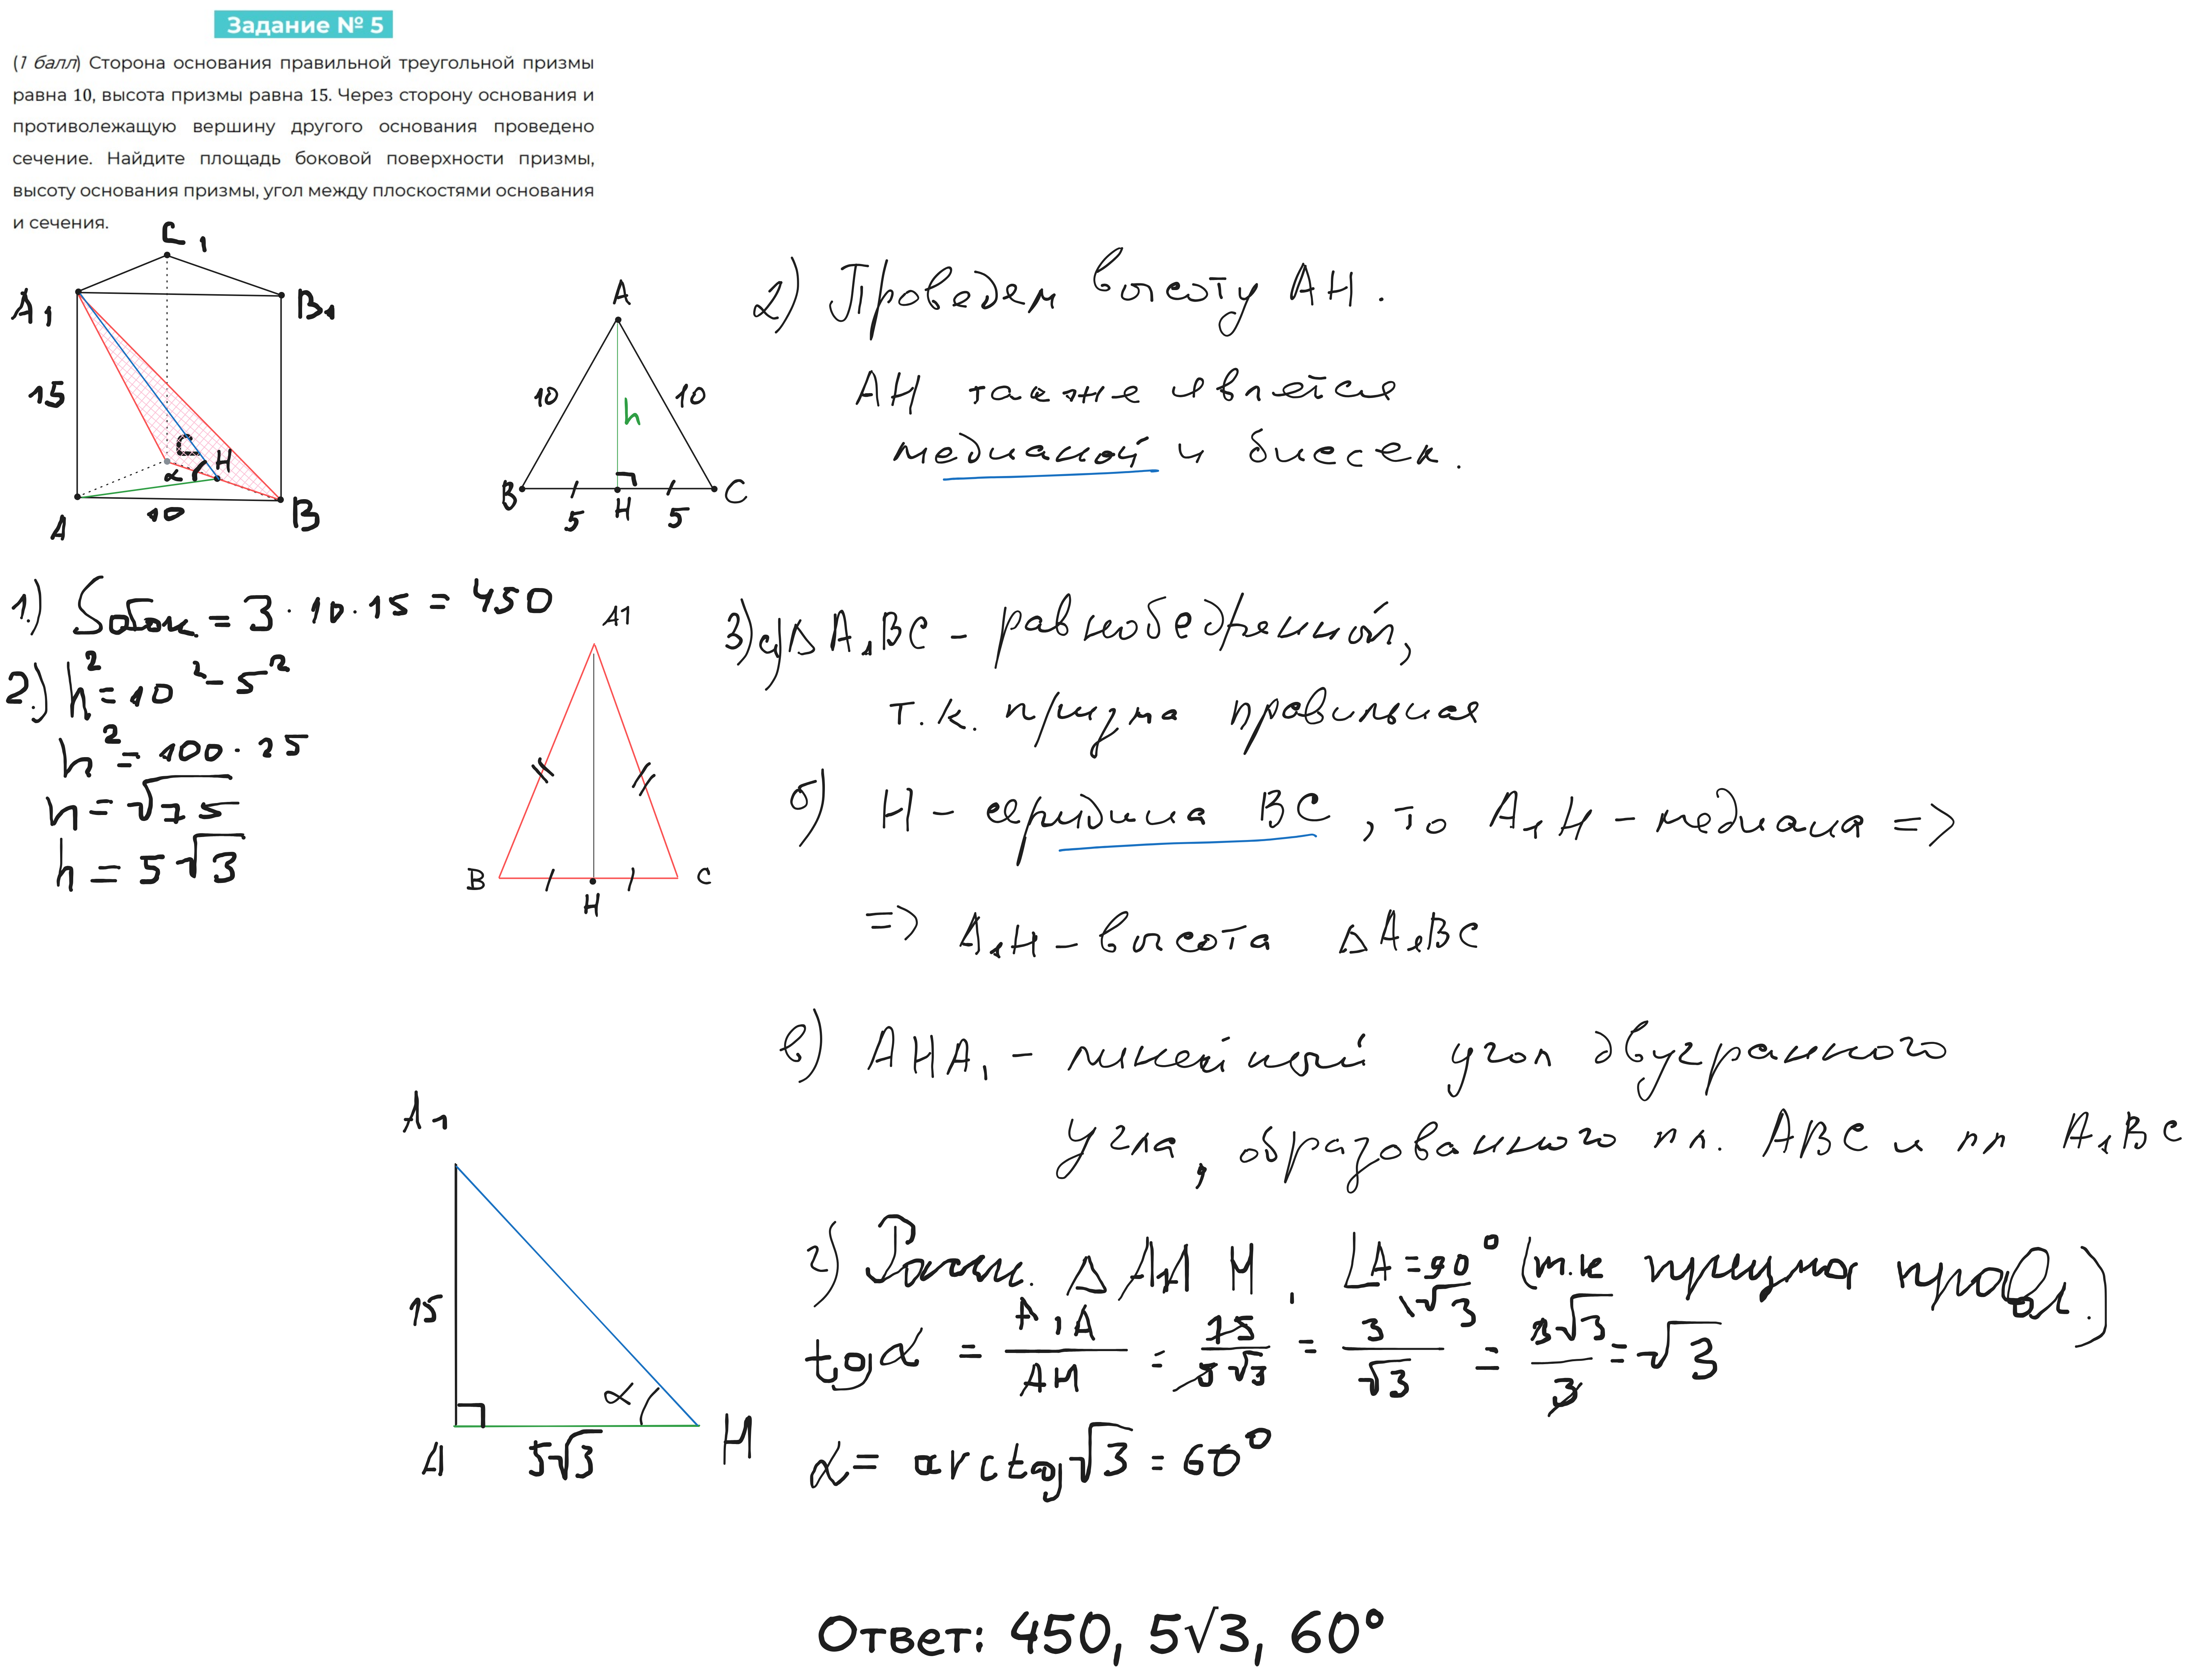 Задание № 5
(1 балл) Сторона основания правильной треугольной призмы
равна 10, высота призмы равна 15. Через сторону основания и
противолежащую вершину другого основания проведено
сечение. Найдите площадь боковой поверхности призмы,
высоту основания призмы, угол между плоскостями основания
и сечения.
C₁
A₁
B₁
15
C
H
α
A
10
B
A
10
10
h
B
H
C
5
5
2) Проведем высоту AH.
AH также является
медианой и биссек.
1.) Sбок. = 3 · 10 · 15 = 450
2.) h² = 10² - 5²
h² = 100 · 25
h = √75
h = 5√3
A1
B
H
C
3) а) Δ A₁BC - равнобедренный,
т.к. призма правильная
б) H - середина BC, то A₁H - медиана =>
=> A₁H - высота Δ A₁BC
в) AHA₁ - линейный угол двугранного
угла, образованного пл. ABC и пл A₁BC
A₁
15
α
A
5√3
H
г) Рассм. Δ A₁A H, ∠A = 90° (т.к призма правл.)
tg α = A₁A / AH = 15 / 5√3 = 3 \√3 / √3 = 3√3 / 3 = √3
α = arctg √3 = 60°
Ответ: 450, 5√3, 60°